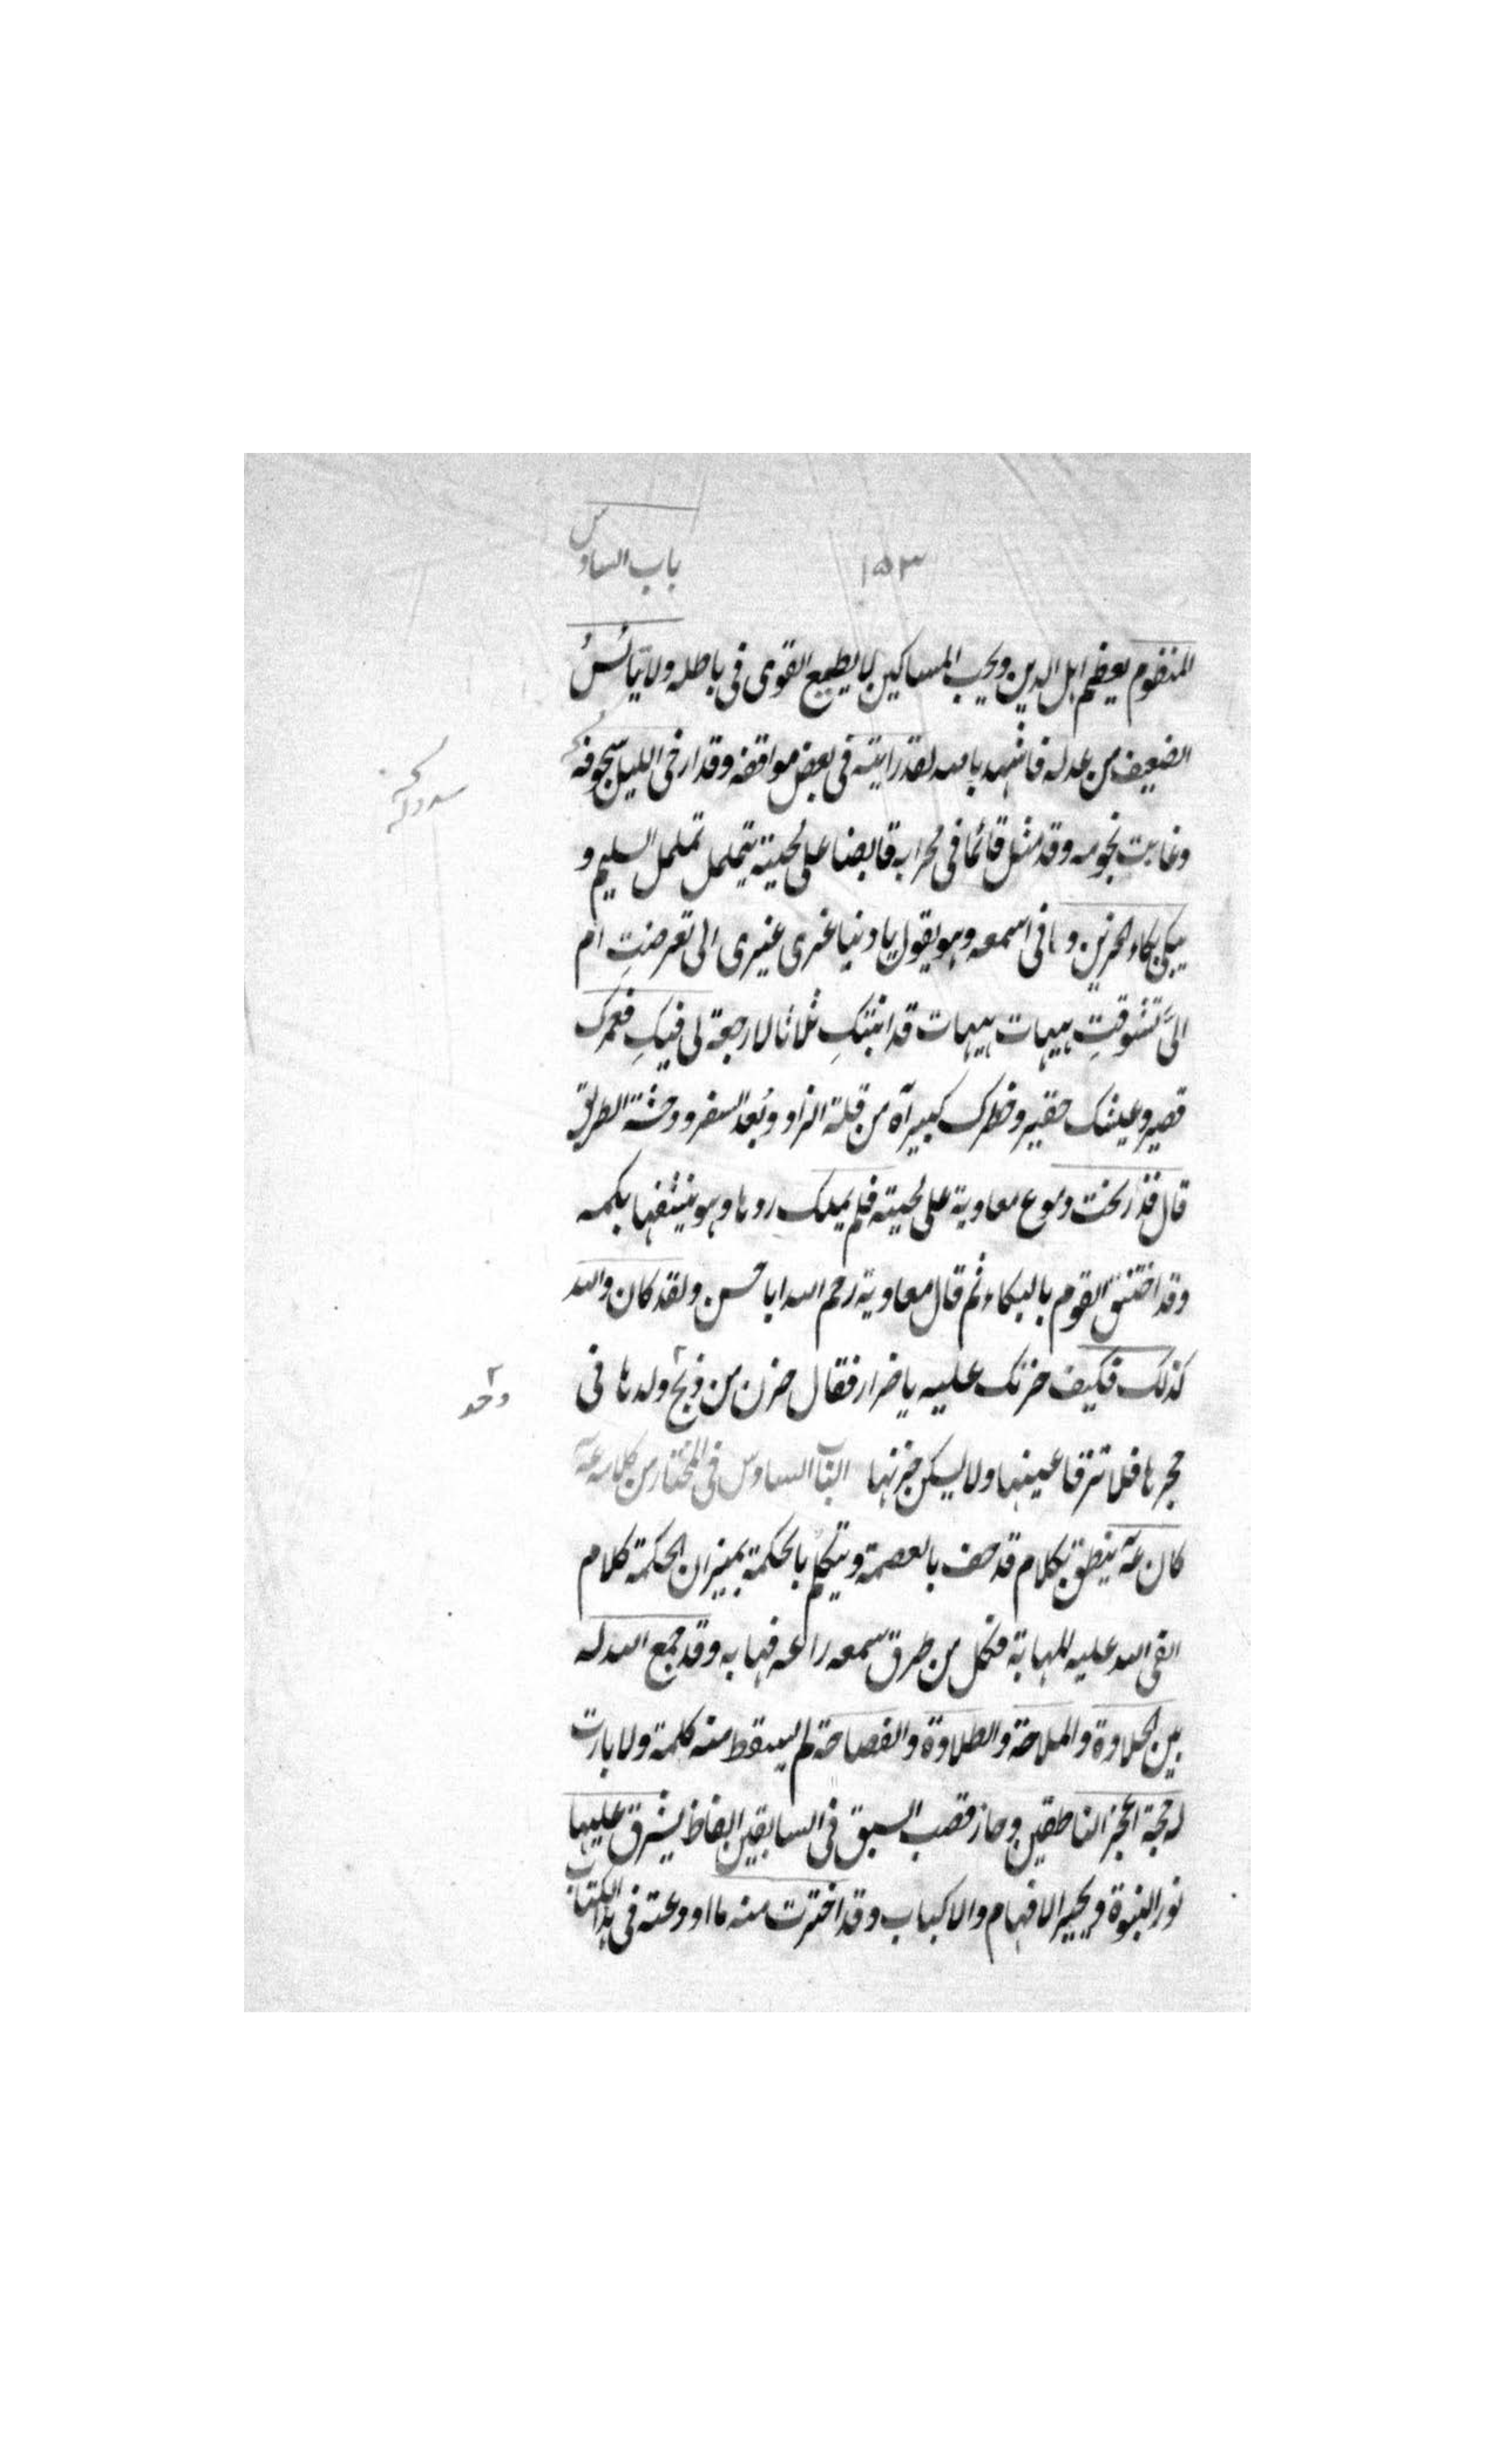 باب السادس
١٥٣
المنظوم يعظم اهل الدين ويحب المساكين لا يطيع القوى فى باطله ولا يتأئس
الضعيف من عدله فاشهد بالله لقد رايته فى بعض مواقفه وقد ارخى الليل سجوفه
وغابت نجومه وقد مثل قائما فى محرابه قابضا على لحيته يتململ تململ السليم و
يبكى بكاء الحزين وانى اسمعه وهو يقول يا دنيا غرى غيرى الى تعرضتِ ام
الىَّ تشوقتِ هيهات هيهات قد ابنتكِ ثلاثا لا رجعة لى فيكِ فعمرك
قصير وعيشك حقير وخطرك كبير آه من قلة الزاد وبُعد السفر ووحشة الطريق
قال فذرفت دموع معاوية على لحيته فلم يملك ردها وهو ينشفها بكمه
وقد اختنق القوم بالبكاء ثم قال معاوية رحم الله ابا حسن ولقد كان والله
كذلك فكيف حزنك عليه يا ضرار فقال حزن من ذبح ولدها فى
واحد
حجرها فلا ترقا عينها ولا يسكن حزنها الباب السادس فى المختار من كلامه عه
كان عه ينطق بكلام قد حف بالعصمة ويتكلم بالحكمة بميزان الحكمة كلام
القى الله عليه المهابة فكل من طرق سمعه راعه فهابه وقد جمع الله له
بين الحلاوة والملاحة والطلاوة والفصاحة لم يسقط منه كلمة ولا بارت
له حجة اعجز الناطقين وحاز قصب السبق فى السابقين الفاظ يشرق عليها
نور النبوة ويحير الافهام والالباب وقد اخترت منه ما اودعته فى هذا الكتاب